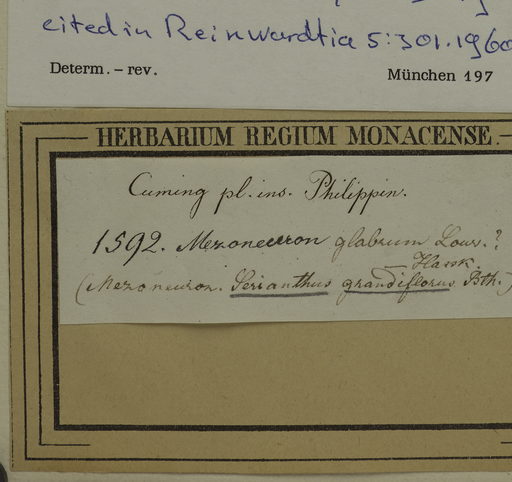 cited in Reinwardtia 5:301.1960
Determ. – rev. München 197
HERBARIUM REGIUM MONACENSE.
Cuming pl. ins. Philippin.
1592. Mezoneuron glabrum Lour.?
Hassk.
(Mezoneuron. Serianthus grandiflorus Bth.)